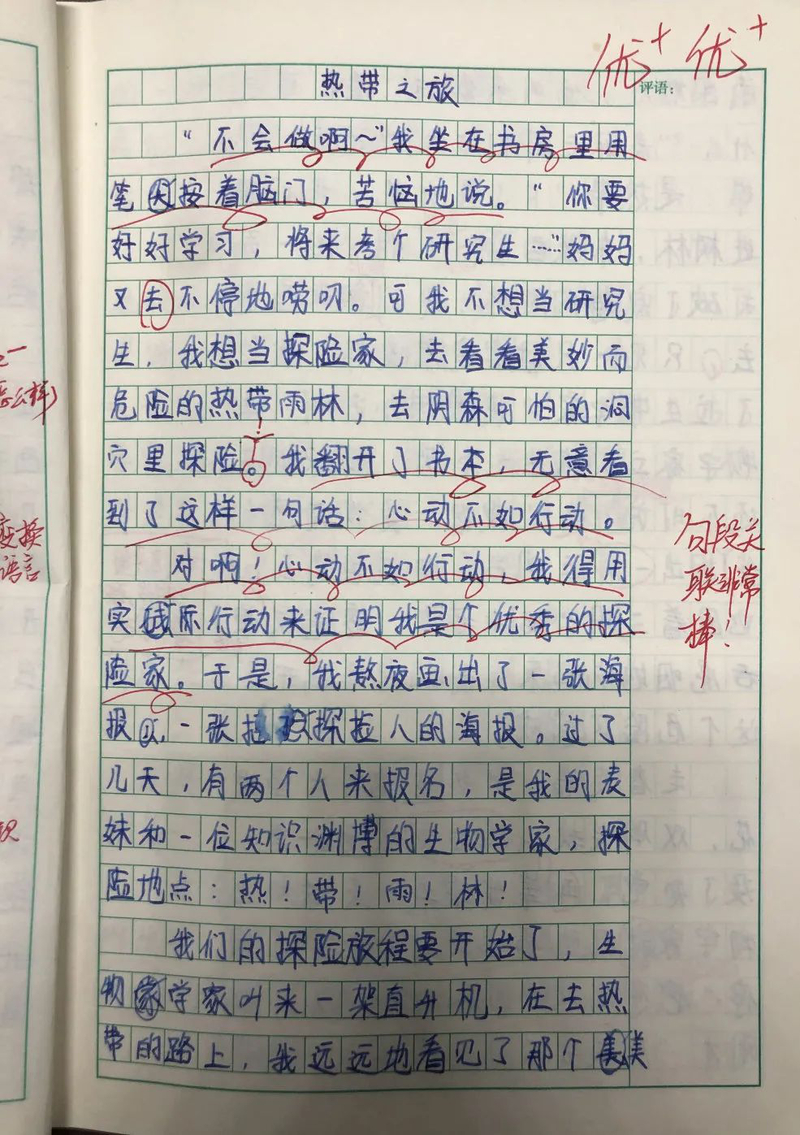 优+ 优+
评语：
热带之旅
“不会做啊～”我坐在书房里用
笔按着脑门，苦恼地说。“你要
好好学习，将来考个研究生……”妈妈
又去不停地唠叨。可我不想当研究
生，我想当探险家，去看看美妙而
危险的热带雨林，去阴森可怕的洞
穴里探险。我翻开了书本，无意看
到了这样一句话：心动不如行动。
对啊！心动不如行动，我得用
实际行动来证明我是个优秀的探
险家。于是，我熬夜画出了一张海
报，一张探险人的海报。过了
几天，有两个人来报名，是我的表
妹和一位知识渊博的生物学家，探
险地点：热！带！雨！林！
我们的探险旅程要开始了，生
物学家叫来一架直升机，在去热
带的路上，我远远地看见了那个美
句段关
联非常
棒！
怎么样）
变换
语言